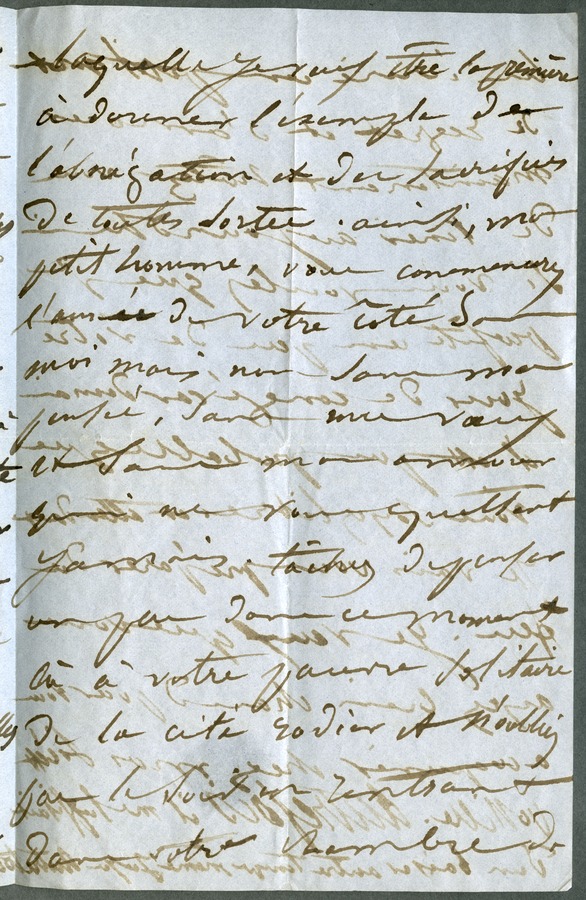 laquelle je vais être la première
à donner l'exemple de
l'abnégation et des sacrifices
De toutes sortes. ainsi, mon
petit homme, vous commencerez
l'année de votre côté sans
moi mais, non sans ma
pensée, sans mes vœux
et sans mon amour
qui ne vous quittent
jamais. tâchez de penser
un peu dans ce moment
là à votre pauvre solitaire
De la cité rodier et n'oubliez
pas le soir en rentrant
Dans votre chambre de